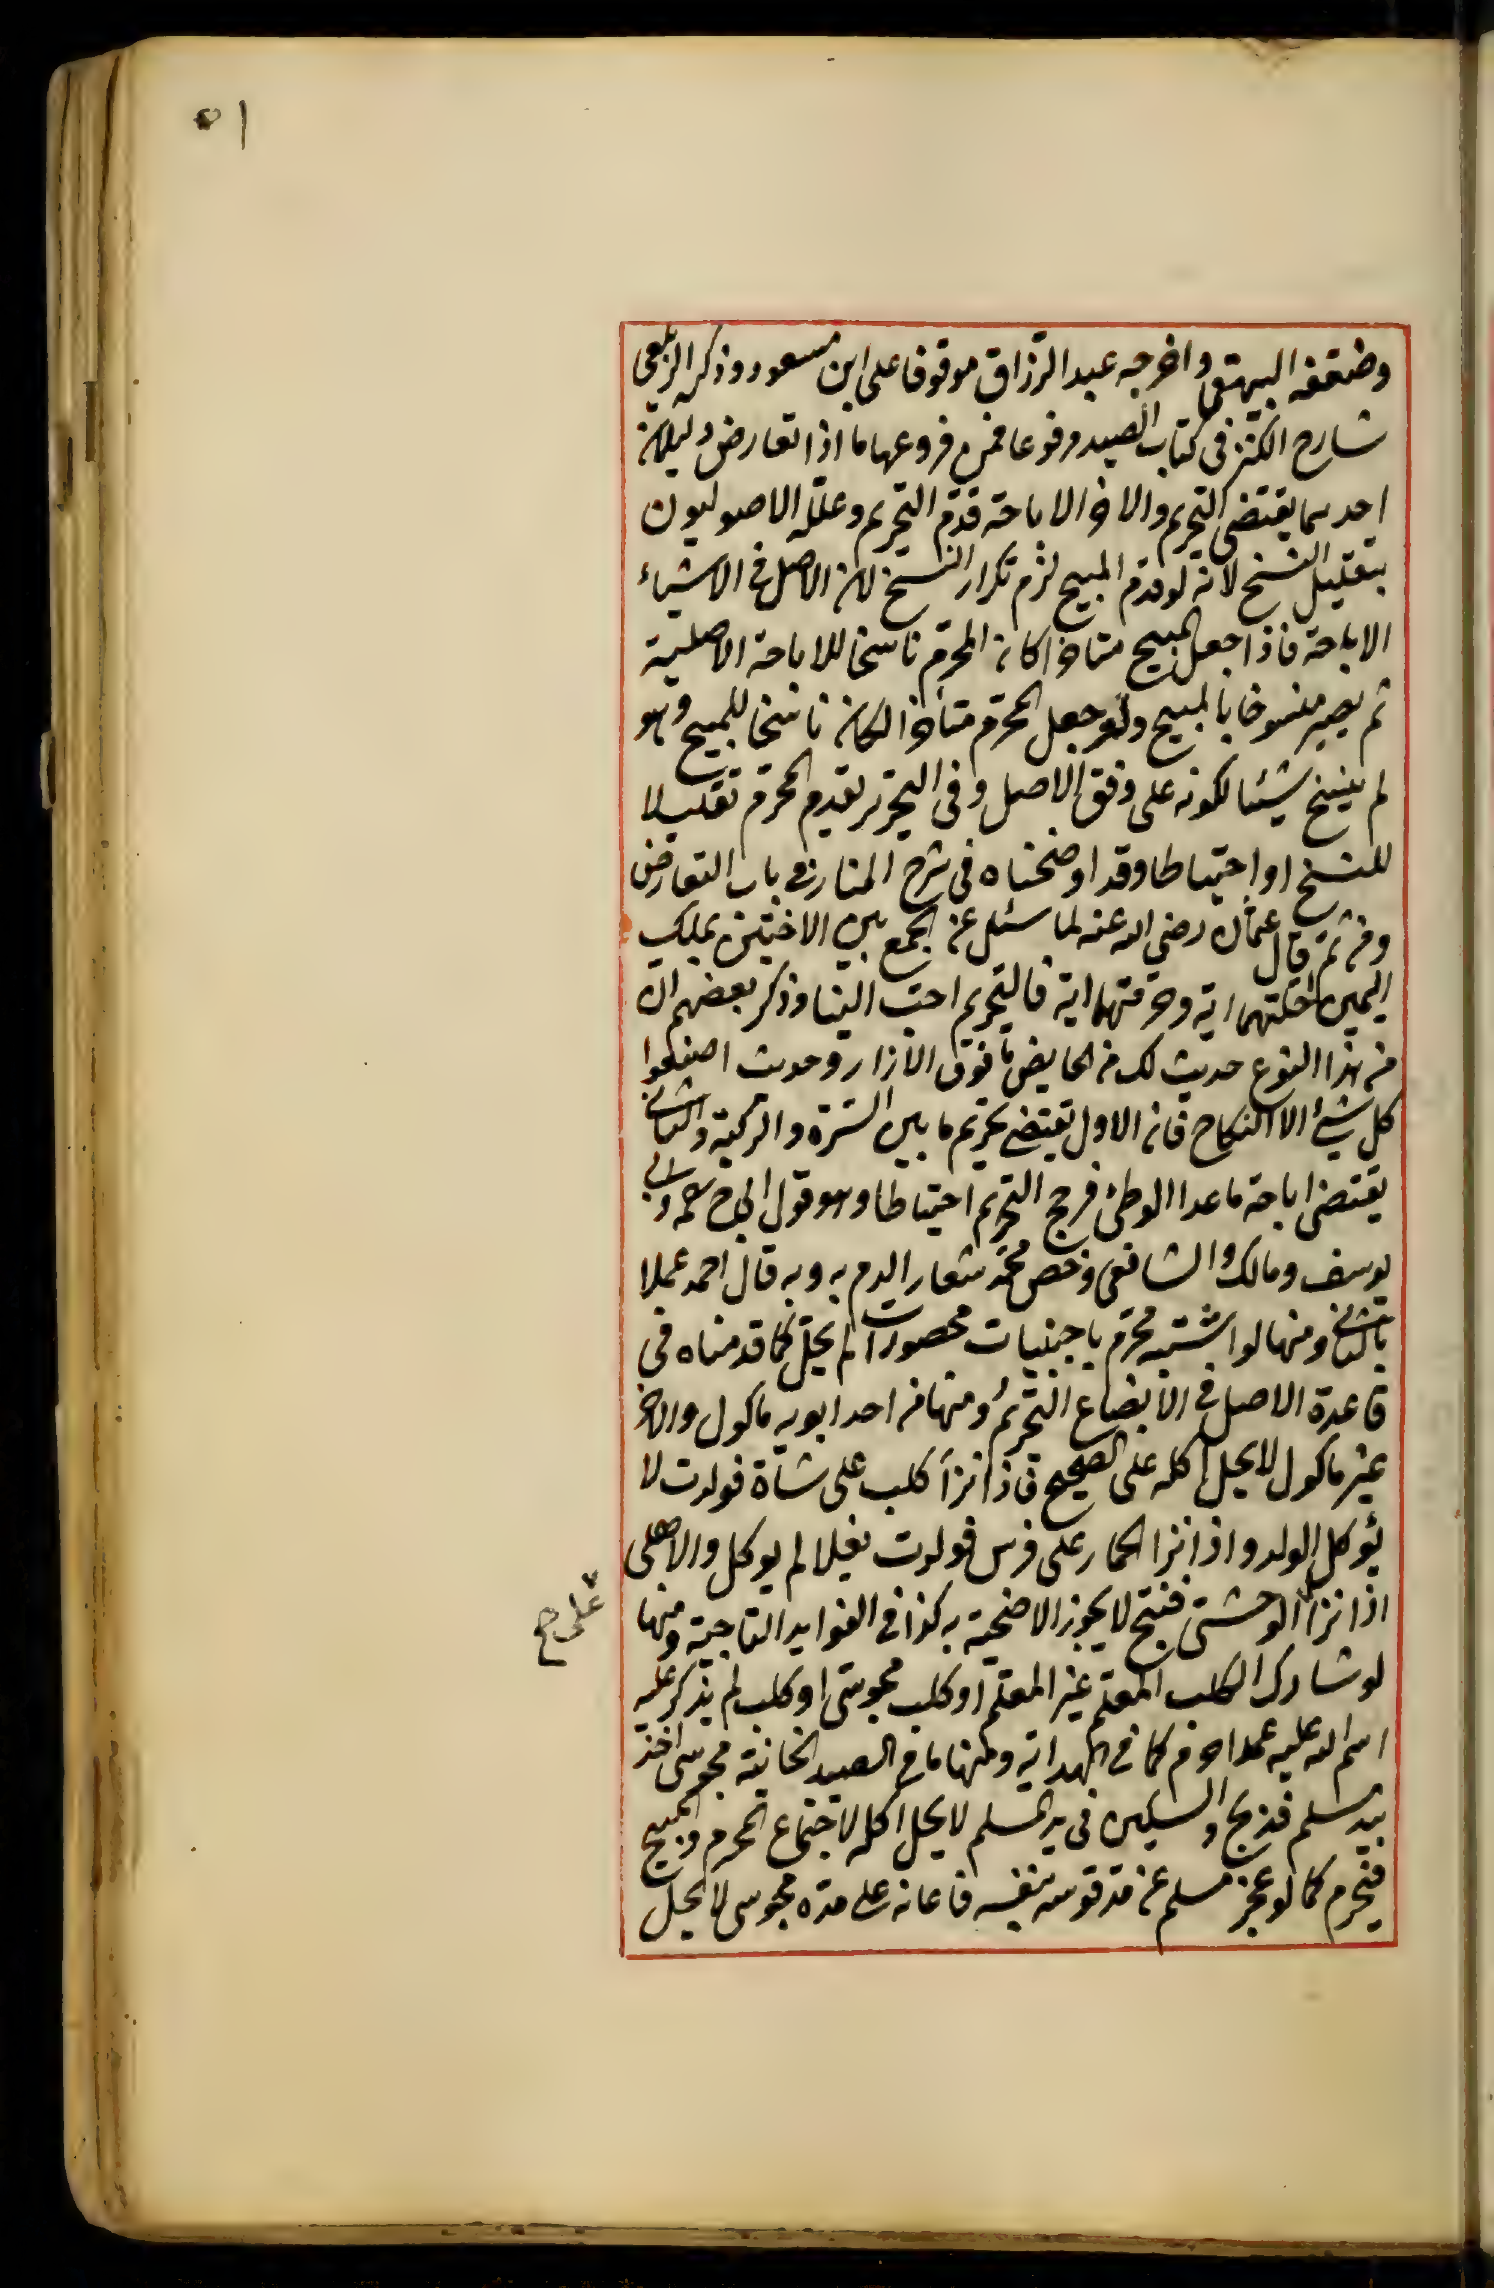 ٥١
وضعفه البيهقى واخرجه عبد الرزاق موقوفا على ابن مسعود وذكره الزيلعى
شارح الكنز فى كتاب الصيد مرفوعا فمن فروعها ما اذا تعارض دليلان
احدهما يقتضى التحريم والاخر الاباحة قدم التحريم وعلله الاصوليون
بتقليل النسخ لانه لو قدم المبيح لزم تكرار النسخ لان الاصل فى الاشياء
الاباحة فاذا جعل المبيح متاخرا كان المحرم ناسخا للاباحة الاصلية
ثم يصير منسوخا بالمبيح ولو جعل المحرم متأخرا لكان ناسخا للمبيح وهو
لم ينسخ شيئا لكونه على وفق الاصل وفى التحرير تقدم المحرم تقليلا
للنسخ او احتياطا وقد اوضحناه فى شرح المنار فى باب التعارض
ومن ثم قال عثمان رضى الله عنه لما سئل عن الجمع بين الاختين بملك
اليمين احلتهما اية وحرمتهما اية فالتحريم احب الينا وذكر بعضهم ان
من هذا النوع حديث لك من الحايض ما فوق الازار وحديث اصنعوا
كل شئ الا النكاح فان الاول يقتضى تحريم ما بين السترة والركبة والثانى
يقتضى اباحة ما عدا الوطئ فرجح التحريم احتياطا وهو قول ابى ح رحمه وابى
يوسف ومالك والشافعى وخص محمد شعار الدم به وبه قال احمد عملا
بالثانى ومنها لو اشتبه محرم باجنبيات محصورات لم يحل كما قدمناه فى
قاعدة الاصل فى الابضاع التحريم ومنها من احد ابويه ماكول والاخر
غير ماكول لا يحل اكله على الصحيح فاذا نزأ كلب على شاة فولدت لا
يؤكل الولد واذا نزا الحمار على فرس فولدت بغلا لم يوكل والاهلى
اذا نزا الوحشى فنتج لا يجوز الاضحية به كذا فى الفوايد التاجية ومنها
على صح
لو شارك الكلب المعلم غير المعلم او كلب مجوسى او كلب لم يذكر عليه
اسم الله عليه عمدا حرم كما فى الهداية ومنها ما فى الصيد الخانية مجوسى اخذ
بيد مسلم فذبح والسكين فى يد المسلم لا يحل اكله لاجتماع المحرم والمبيح
فيحرم كما لو عجز مسلم عن مد قوسه بنفسه فاعانه على مده مجوسى لا يحل